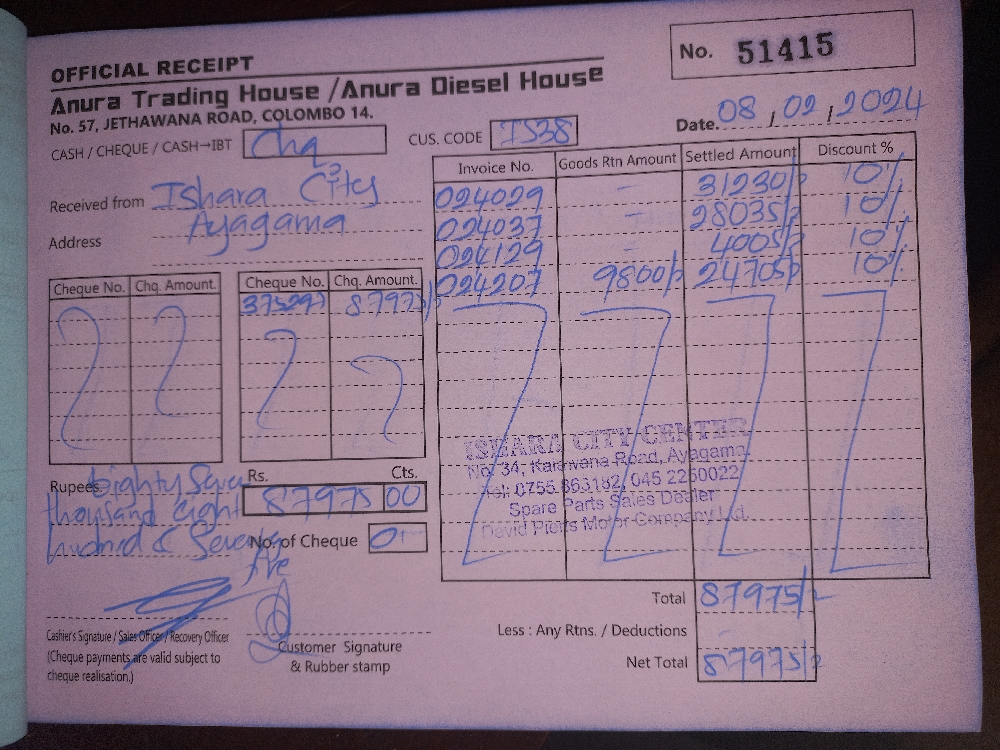 OFFICIAL RECEIPT
No. 51415
Anura Trading House /Anura Diesel House
No. 57, JETHAWANA ROAD, COLOMBO 14.
Date. 08 / 02 / 2024
CASH / CHEQUE / CASH→IBT Chq
CUS. CODE IS38
Received from Ishara City
Address Ayagama
Invoice No. Goods Rtn Amount Settled Amount Discount %
024029 - 31230/- 10%
024037 - 28035/- 10%
024129 - 4005/- 10%
024207 9800/- 24705/- 10%
Cheque No. Chq. Amount. Cheque No. Chq. Amount.
87975/-
ISHARA CITY CENTER
No. 34, Karawana Road, Ayagama
Tel: 0755 863182, 045 2250022
Spare Parts Sales Dealer
David Pieris Motor Company Ltd.
Rupees. Eighty Seven
thousand eight
hundred & Seventy
five
Rs. Cts.
87975 00
No. of Cheque 01
Total 87975/-
Less : Any Rtns. / Deductions -
Net Total 87975/-
Cashier's Signature / Sales Officer / Recovery Officer
(Cheque payments are valid subject to
cheque realisation.)
Customer Signature
& Rubber stamp